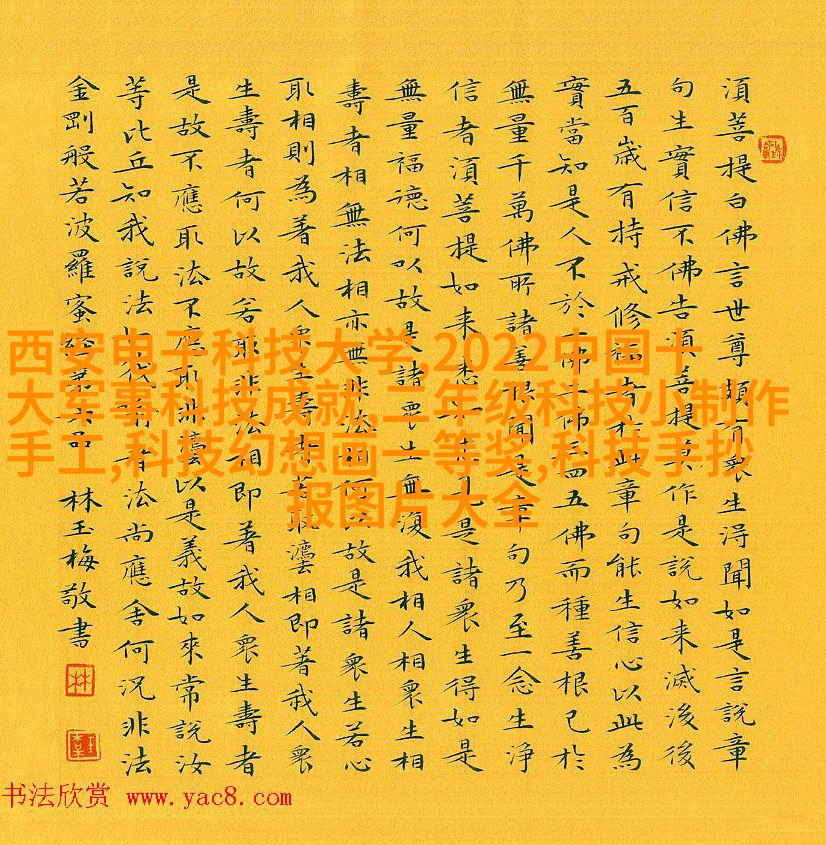 須菩提白佛言世尊頗有衆生得聞如是言說章
句生實信不佛告須菩提莫作是說如来滅後後
五百歲有持戒修福者於此章句能生信心以此為
實當知是人不於一佛二佛三四五佛而種善根已於
無量千萬佛所諸善根聞是章句乃至一念生淨
信者須菩提如来悉知悉見是諸衆生得如是
無量福德何以故是諸衆生無復我相人相衆生相
壽者相無法相亦無非法相何以故是諸衆生若心
取相則為著我人衆生壽者若取灋相即著我人衆
生壽者何以故若取非法相即著我人衆生壽者
是故不應取法不應取非灋以是義故如來常說汝
等比丘知我說法如筏喻者法尚應舍何況非法
金剛般若波羅蜜經第六品 林玉梅敬書
林
西安电子科技大学,2022中国十
大军事科技成就,二年级科技小制作
手工,科技幻想画一等奖,科技手抄
报图片大全
书法欣赏 www.yac8.com